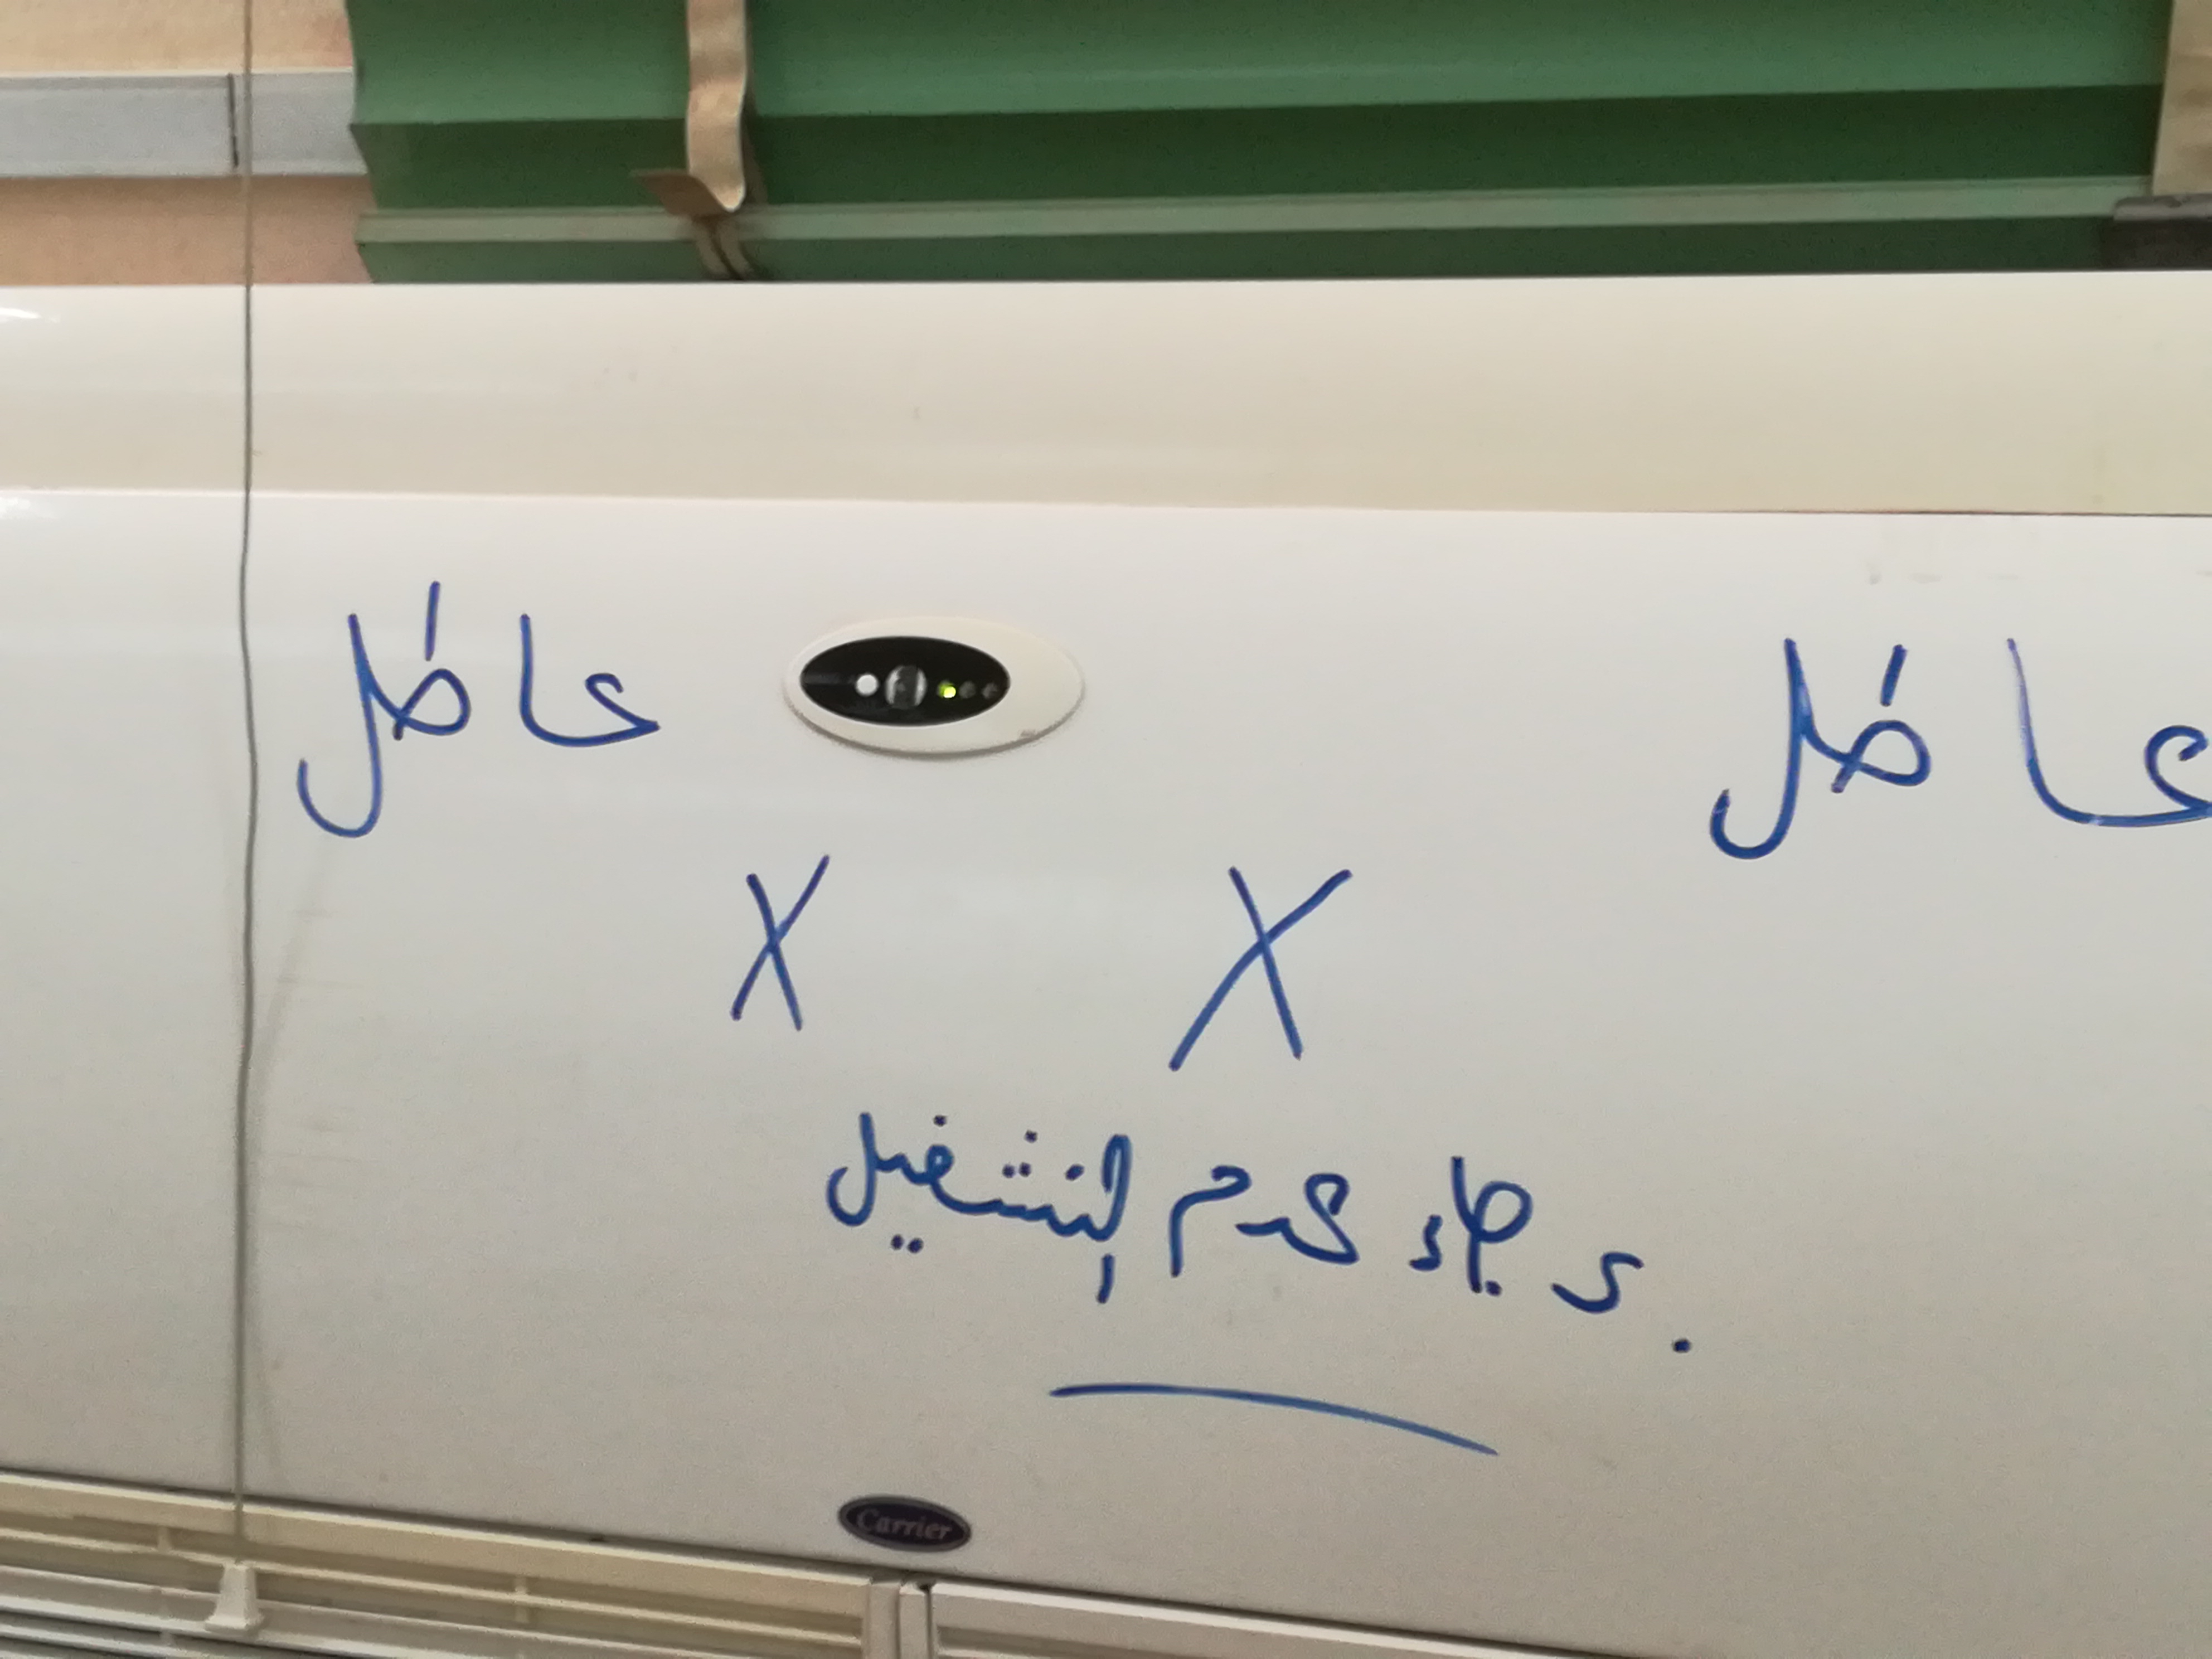 عاطل عاطل
X X
برجاء عدم التشغيل
Carrier